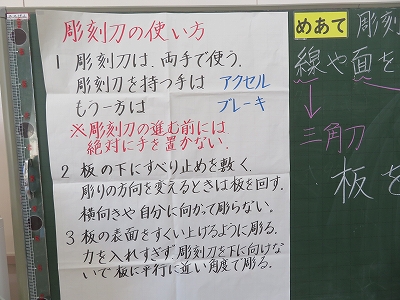 彫刻刀の使い方
1 彫刻刀は、両手で使う.
彫刻刀を持つ手は アクセル
もう一方は ブレーキ
※彫刻刀の進む前には
絶対に手を置かない.
2 板の下にすべり止めを敷く.
彫りの方向を変えるときは板を回す.
横向きや自分に向かって彫らない.
3 板の表面をすくい上げるように彫る.
力を入れすぎず彫刻刀を下に向けな
いで板に平行に近い角度で彫る.
めあて 彫刻
線や面を
三角刀
板を